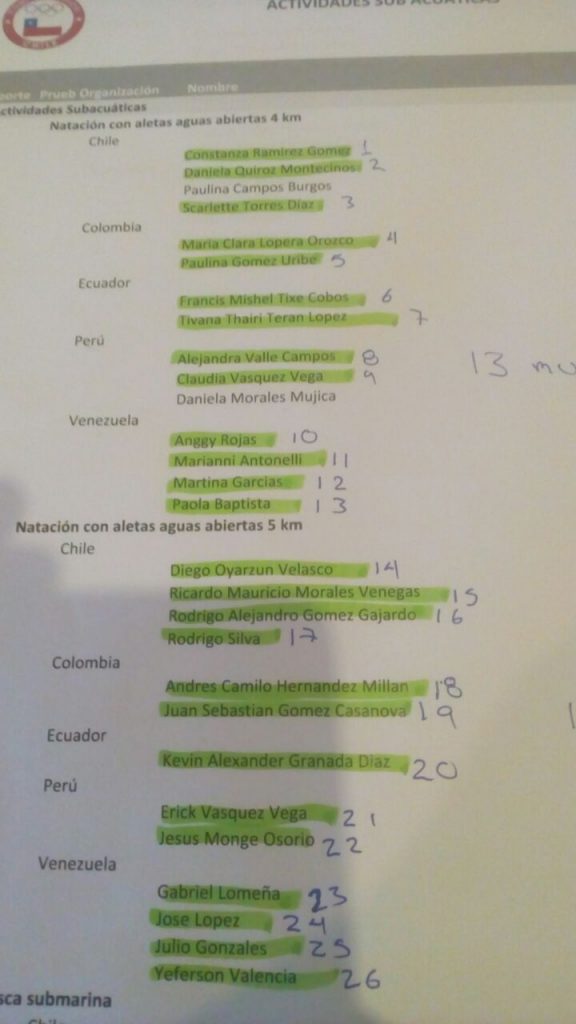 CHILE
ACTIVIDADES SUB ACUATICAS
porte Prueb Organización Nombre
ctividades Subacuáticas
Natación con aletas aguas abiertas 4 km
Chile
Constanza Ramirez Gomez 1
Daniela Quiroz Montecinos 2
Paulina Campos Burgos
Scarlette Torres Diaz 3
Colombia
Maria Clara Lopera Orozco 4
Paulina Gomez Uribe 5
Ecuador
Francis Mishel Tixe Cobos 6
Tivana Thairi Teran Lopez 7
Perú
Alejandra Valle Campos 8
Claudia Vasquez Vega 9
13 mu
Daniela Morales Mujica
Venezuela
Anggy Rojas 10
Marianni Antonelli 11
Martina Garcias 12
Paola Baptista 13
Natación con aletas aguas abiertas 5 km
Chile
Diego Oyarzun Velasco 14
Ricardo Mauricio Morales Venegas 15
Rodrigo Alejandro Gomez Gajardo 16
Rodrigo Silva 17
Colombia
Andres Camilo Hernandez Millan 18
Juan Sebastian Gomez Casanova 19
Ecuador
Kevin Alexander Granada Diaz 20
Perú
Erick Vasquez Vega 21
Jesus Monge Osorio 22
Venezuela
Gabriel Lomeña 23
Jose Lopez 24
Julio Gonzales 25
Yeferson Valencia 26
sca submarina
Chile